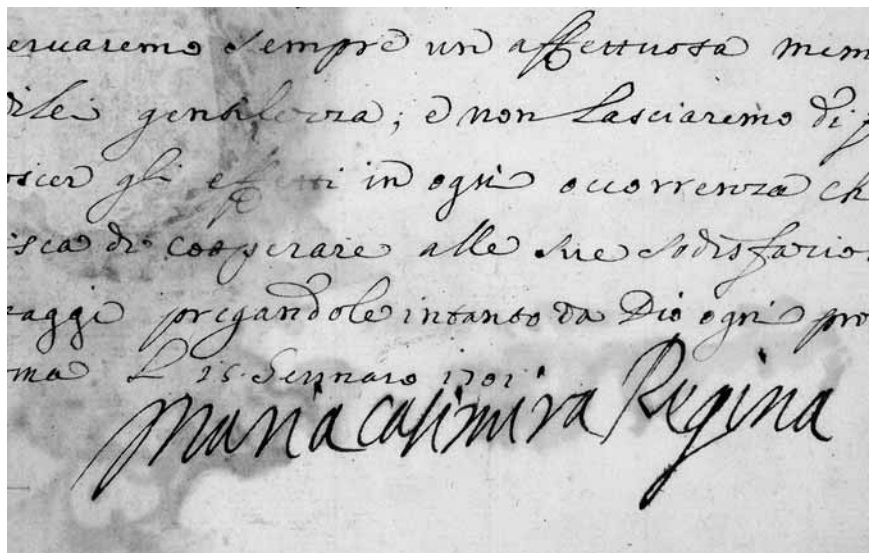 eruaremo sempre un affettuosa mem
di lei gentilezza; e non lasciaremo di f
oscer gli effetti in ogni occorrenza ch
isca di cooperare alle sue sodisfazio
taggi pregandole intanto da Dio ogni pro
ma L 15 Gennaro 1701
Maria Casimira Regina